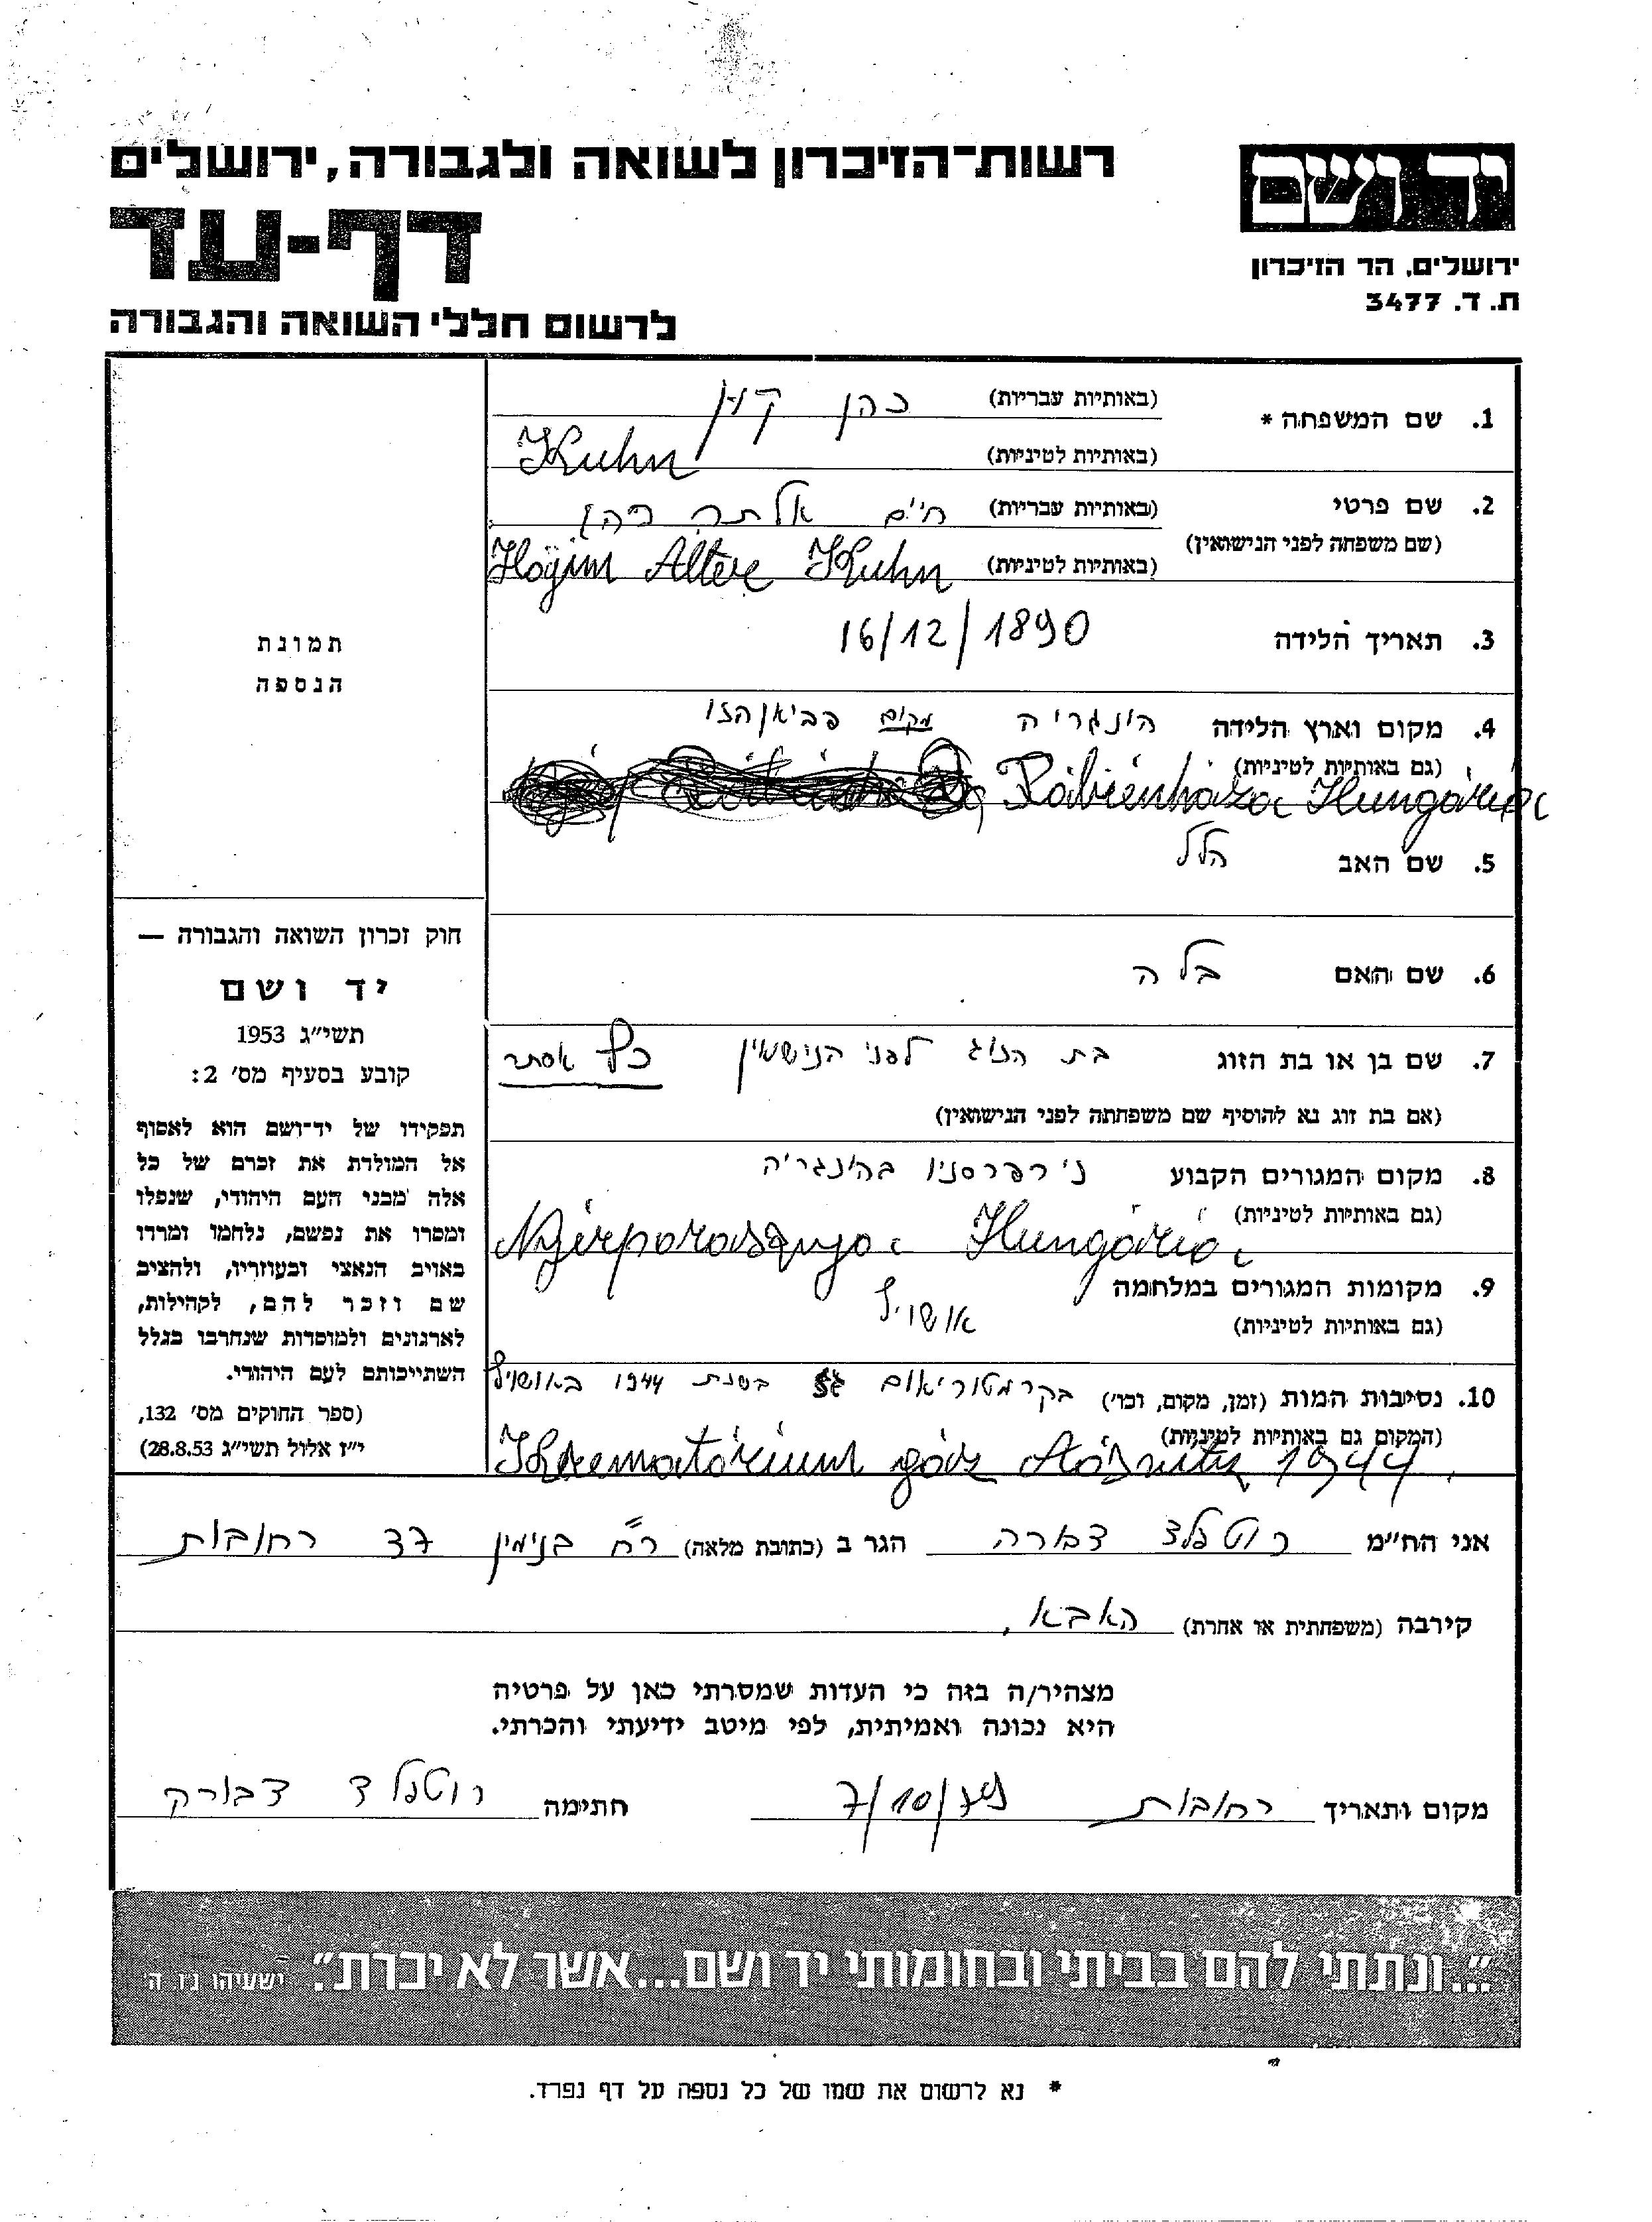 רשות־הזיכרון לשואה ולגבורה, ירושלים
יד ושם
דף-עד
ירושלים, הר הזיכרון
ת. ד. 3477
לרשום חללי השואה והגבורה
1. שם המשפחה * (באותיות עבריות) כהן קון
(באותיות לטיניות) Kuhn
2. שם פרטי (באותיות עבריות) חיים אלתר כהן
(שם משפחה לפני הנישואין)
(באותיות לטיניות) Hájim Alter Kuhn
3. תאריך הלידה 16/12/1890
4. מקום וארץ הלידה הונגריה מקום פביאנהזו
(גם באותיות לטיניות) Pábiénháza Hungária
5. שם האב הלל
6. שם האם בלה
7. שם בן או בת הזוג בת הזוג לפני הנישואין כץ אסתר
(אם בת זוג נא להוסיף שם משפחתה לפני הנישואין)
8. מקום המגורים הקבוע בהונגריה
(גם באותיות לטיניות) Hungária
9. מקומות המגורים במלחמה אושויץ
(גם באותיות לטיניות)
10. נסיבות המות (זמן, מקום, וכו') בקרמטוריאום גז בשנת 1944 באושויץ
(המקום גם באותיות לטיניות)
Krematórium gáz 1944
תמונת
הנספה
חוק זכרון השואה והגבורה —
יד ושם
תשי"ג 1953
קובע בסעיף מס' 2:
תפקידו של יד־ושם הוא לאסוף
אל המולדת את זכרם של כל
אלה מבני העם היהודי, שנפלו
ומסרו את נפשם, נלחמו ומרדו
באויב הנאצי ובעוזריו, ולהציב
שם וזכר להם, לקהילות,
לארגונים ולמוסדות שנחרבו בגלל
השתייכותם לעם היהודי.
(ספר החוקים מס' 132,
י"ז אלול תשי"ג 28.8.53)
אני הח"מ רוטפלד דבורה הגר ב (כתובת מלאה) רח בנימין 37 רחובות
קירבה (משפחתית או אחרת) האבא,
מצהיר/ה בזה כי העדות שמסרתי כאן על פרטיה
היא נכונה ואמיתית, לפי מיטב ידיעתי והכרתי.
מקום ותאריך רחובות חתימה רוטפלד דבורה
"...ונתתי להם בביתי ובחומותי יד ושם...אשר לא יכרת". ישעיהו נו, ה
* נא לרשום את שמו של כל נספה על דף נפרד.